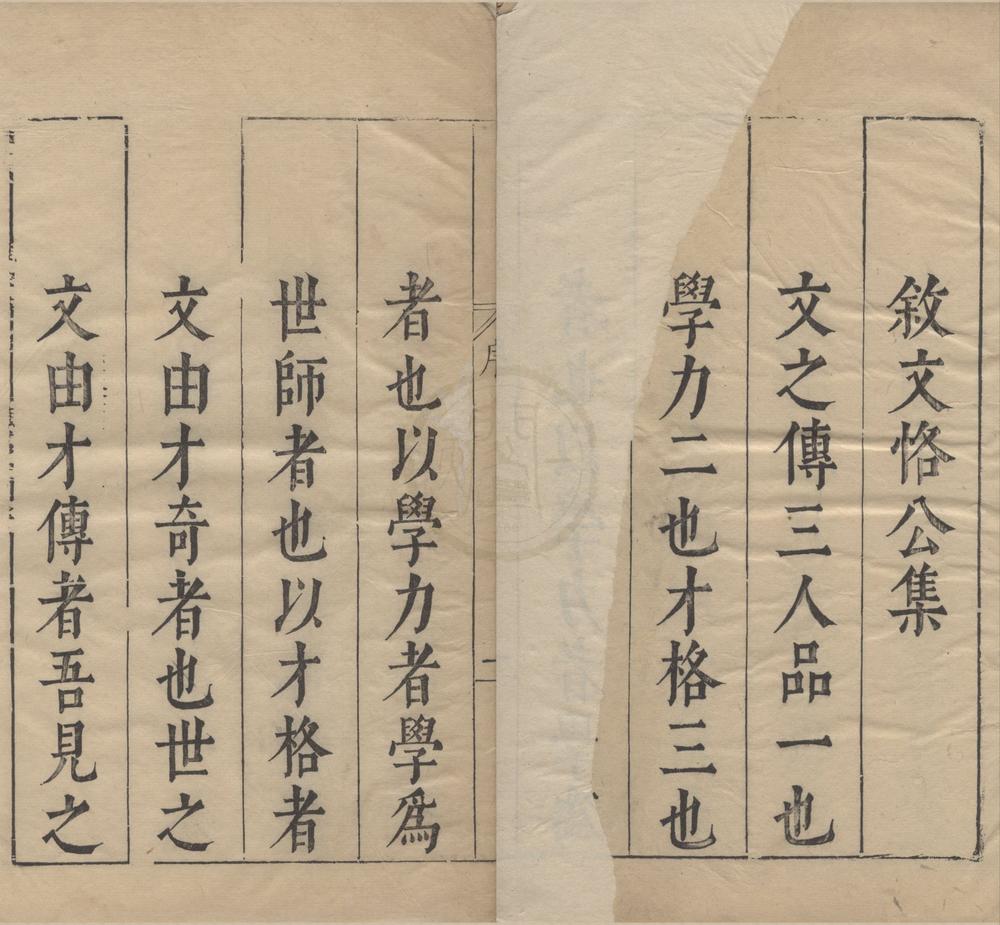 敘文恪公集
文之傳三人品一也
學力二也才格三也
序
二
者也以學力者學爲
世師者也以才格者
文由才奇者也世之
文由才傳者吾見之